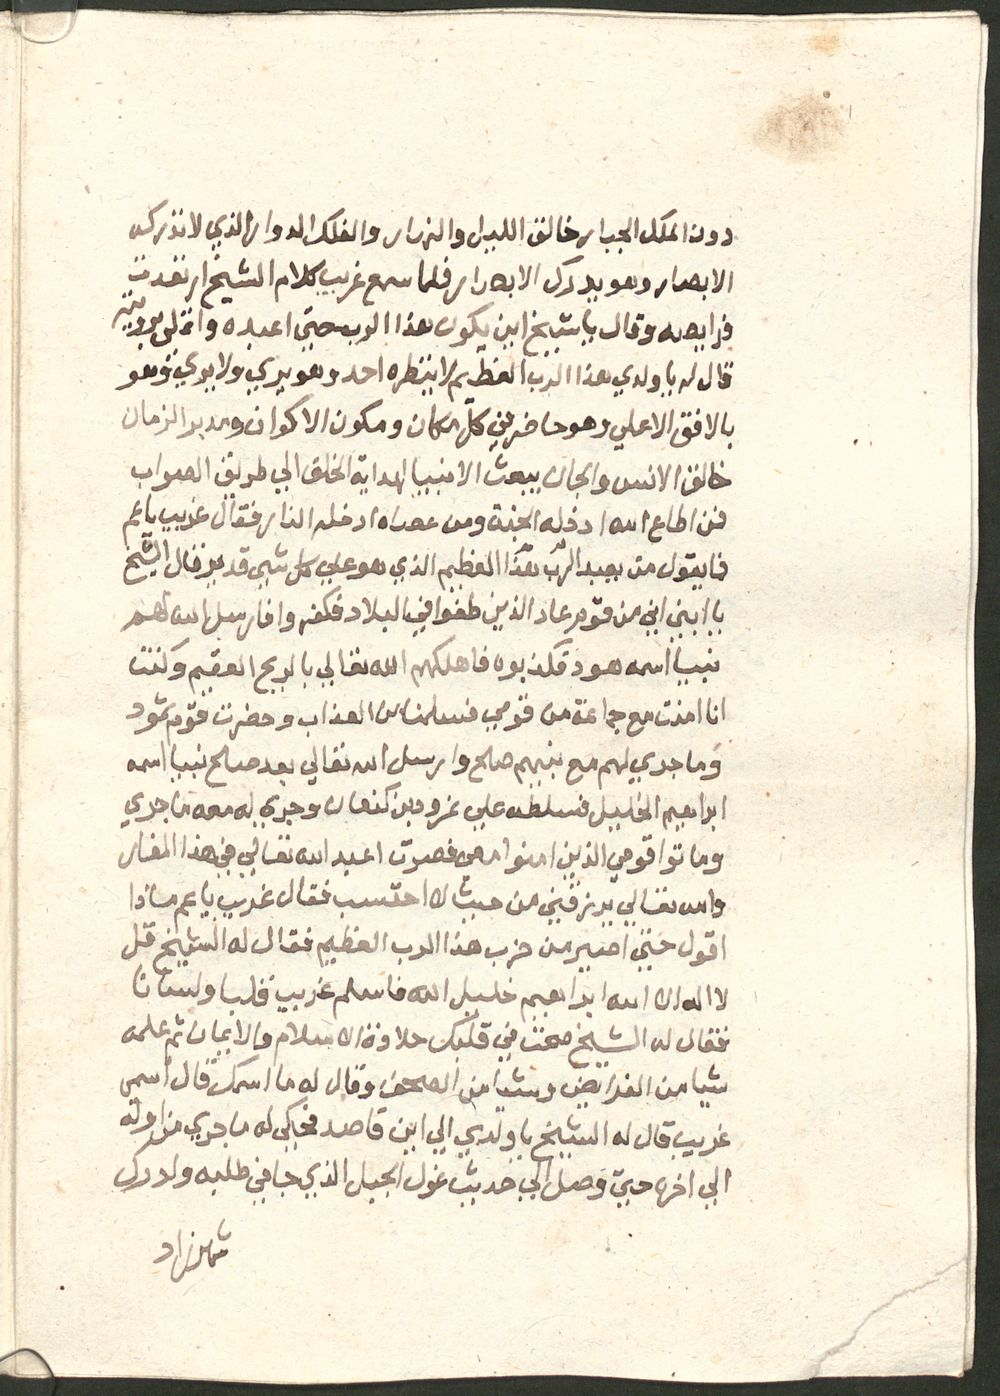 دون الملك الجبار خالق الليل والنهار والفلك الدوار الذي لا تذركه
الابصار وهو يدرك الابصار فلما سمع غريب كلام الشيخ ارتعدت
فرايصه وقال يا شيخ اين يكون هذا الرب حتي اعبده واتملي برويته
قال له يا ولدي هذا الرب العظيم لا ينظره احد وهو يري ولا يري وهو
بالافق الاعلي وهو حاضر في كل مكان ومكون الاكوان ومدبر الزمان
خالق الانس والجان يبعث الانبيا لهداية الخلق الي طريق الصواب
فمن اطاع الله ادخله الجنة ومن عصاه ادخله النار فقال غريب يا عم
فما يقول من يعبد الرب هذا العظيم الذي هو علي كل شي قدير فقال الشيخ
يا ابني اني من قوم عاد الذين طغوا في البلاد فكفروا فارسل الله لهم
نبيا اسمه هود فكذبوه فاهلكهم الله تعالي بالريح العقيم وكنت
انا امنت مع جماعة من قومي فسلمنا من العذاب وحضرت قوم ثمود
وما جري لهم مع نبيهم صالح وارسل الله تعالي بعد صالح نبيا اسمه
ابراهيم الخليل فسلطه علي نمرود بن كنعان وجري له معه ما جري
وماتوا قومي الذين امنوا معي فصرت اعبد الله تعالي في هذا المغار
والله تعالي يرزقني من حيث لا احتسب فقال غريب يا عم ماذا
اقول حتي اصير من حزب هذا الرب العظيم فقال له الشيخ قل
لا اله الا الله ابراهيم خليل الله فاسلم غريب قلبا ولسانا
فقال له الشيخ صحت في قلبك حلاوة الاسلام والايمان ثم علمه
شيا من الفرايض وشيا من الصحف وقال له ما اسمك قال اسمي
غريب قال له الشيخ يا ولدي الي اين قاصد فحكي له ما جري من اوله
الي اخره حتي وصل الي حديث غول الجبل الذي جا في طلبه وادرك
شهرزاد